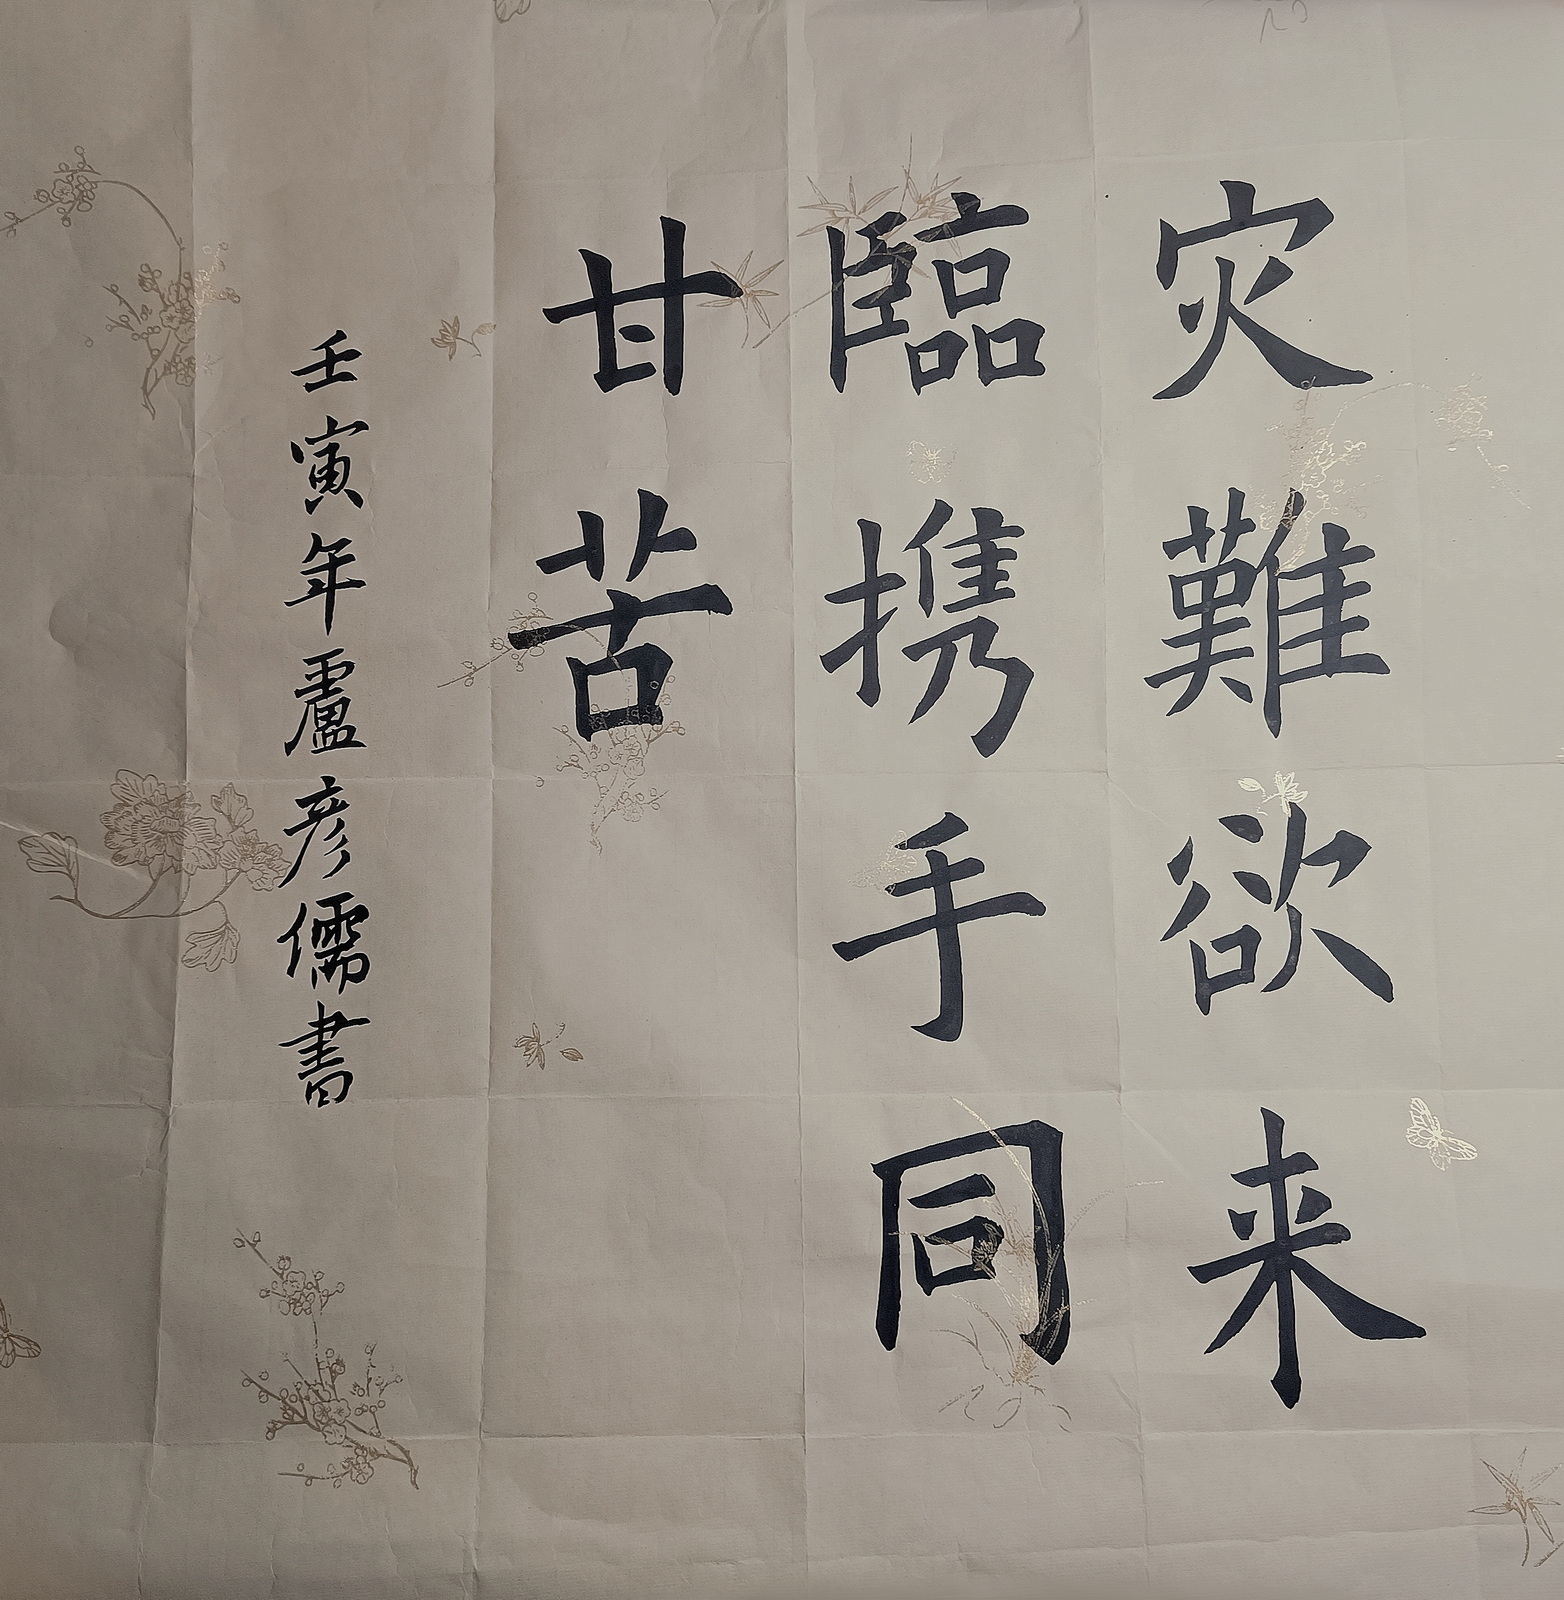 灾難欲来
臨携手同
甘苦
壬寅年盧彦儒書